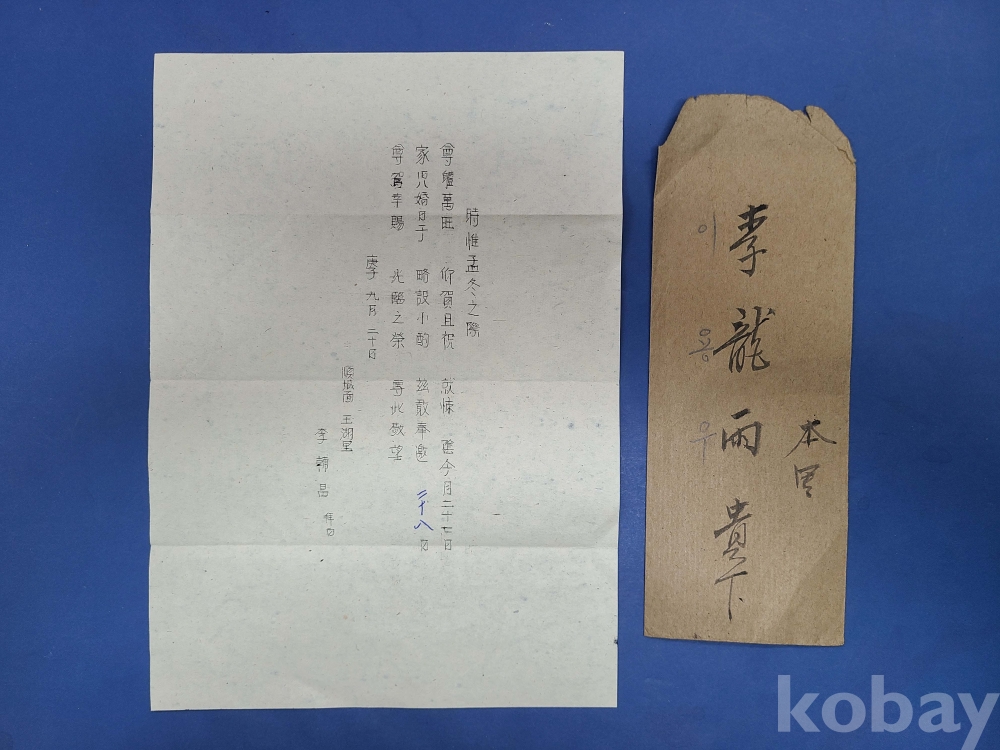 時惟孟冬之際
尊體萬旺 仰賀且祝 就悚 陰今月二十七日
家児婚日予 略設小酌 玆敢奉邀 二十八日
尊駕幸賜 光臨之榮 專此敬望
庚子 九月 二十日
面 玉湖里
李 昌 拜
本里
李龍雨 貴下
이용우
kobay